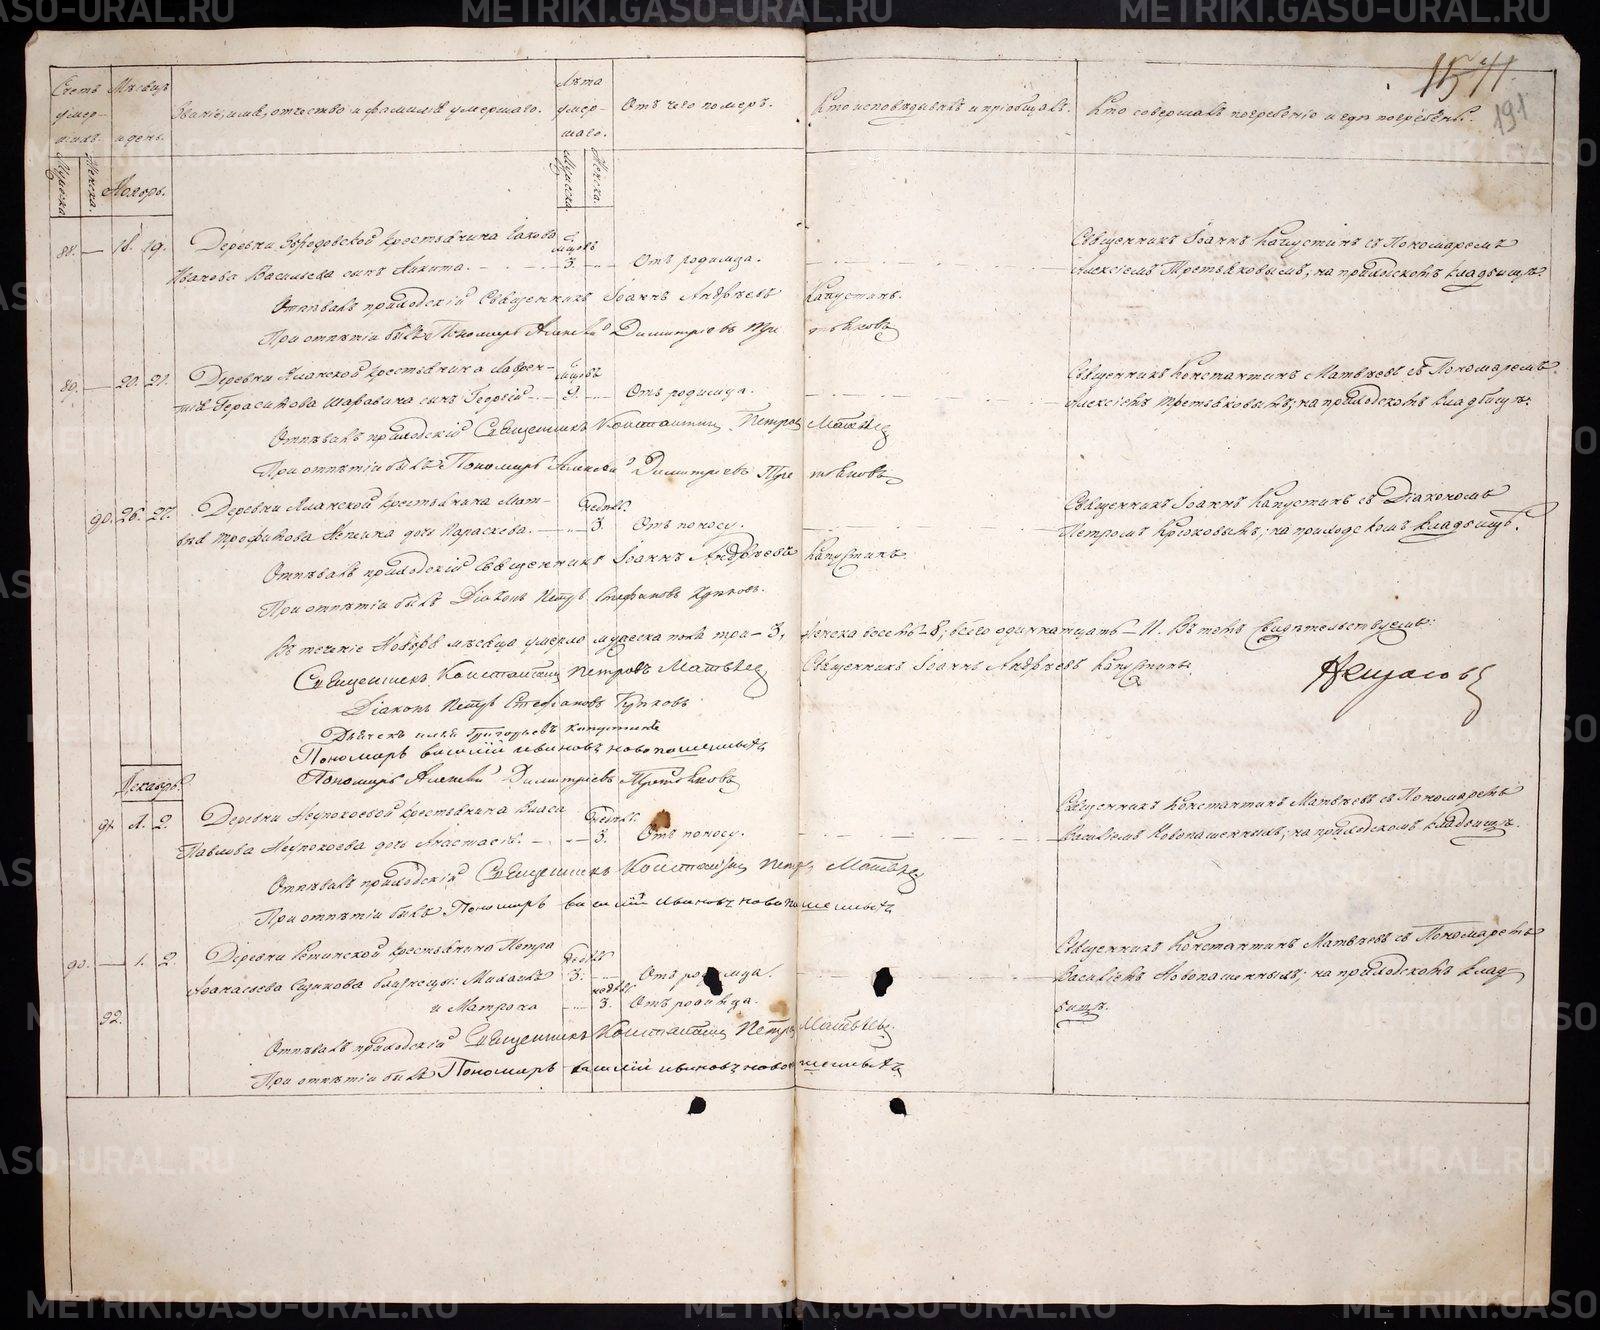 METRIKI.GASO-URAL.RU
1571.
191
Счетъ умер-шихъ.
Мѣсяцъ и день.
Званіе, имя, отчество и фамилія умершаго.
Лѣта умер-шаго.
Отъ чего померъ.
Кто исповѣдывалъ и пріобщалъ.
Кто совершалъ погребеніе и гдѣ погребенъ.
Мужеска
Женска.
Мужеска.
Женска.
Ноябрь.
88. — 18. 19. Деревни крестьянина Іакова
Иванова Васильева сынъ Никита. 3. Отъ родимца.
Священникъ Іоаннъ Капустинъ съ Пономаремъ
Алексіемъ Третьяковымъ; на приходскомъ кладбищѣ.
Отпѣвалъ приходскій Священникъ Іоаннъ Андреевъ Капустинъ.
При отпѣтіи былъ Пономарь Алексѣй Димитріевъ Третьяковъ
89. — 20. 21. Деревни крестьянина Лаврен-
тія Герасимова Шаравина сынъ Георгій 9. Отъ родимца.
Священникъ Константинъ Матвѣевъ съ Пономаремъ
Алексіемъ Третьяковымъ; на приходскомъ кладбищѣ.
Отпѣвалъ приходскій Священникъ Константинъ Петровъ Матвѣевъ
При отпѣтіи былъ Пономарь Алексѣй Димитріевъ Третьяковъ
90. 26. 27. Деревни крестьянина Мат-
вѣя Трофимова дочь Параскева. 3. Отъ поносу.
Священникъ Іоаннъ Капустинъ съ Діакономъ
Петромъ; на приходскомъ кладбищѣ.
Отпѣвалъ приходскій священникъ Іоаннъ Андреевъ Капустинъ.
При отпѣтіи былъ Діаконъ Петръ Стефановъ
Въ теченіе Ноября мѣсяца умерло мужеска пола три — 3, женска восемь — 8; всего одиннатцать — 11. Въ томъ свидѣтельствуемъ:
Священникъ Константинъ Петровъ Матвѣевъ
Священникъ Іоаннъ Андреевъ Капустинъ
Діаконъ Петръ Стефановъ
Дьячекъ Илья Григорьевъ Капустинъ
Пономарь Василій Ивановъ Новопашенныхъ
Пономарь Алексѣй Димитріевъ Третьяковъ
Декабрь.
91. 1. 2. Деревни Неупокоевой крестьянина Власа
Павлова Неупокоева дочь Анастасія. 3. Отъ поносу.
Священникъ Константинъ Матвѣевъ съ Пономаремъ
Василіемъ Новопашеннымъ; на приходскомъ кладбищѣ.
Отпѣвалъ приходскій Священникъ Константинъ Петровъ Матвѣевъ
При отпѣтіи былъ Пономарь Василій Ивановъ Новопашенныхъ
90. — 1. 2. Деревни крестьянина Петра
Аѳанасьева близнецы: Михаилъ 3. Отъ родимца.
и Матрона 3. Отъ родимца.
92.
Священникъ Константинъ Матвѣевъ съ Пономаремъ
Василіемъ Новопашеннымъ; на приходскомъ клад-
бищѣ.
Отпѣвалъ приходскій Священникъ Константинъ Петровъ Матвѣевъ
При отпѣтіи былъ Пономарь Василій Ивановъ Новопашенныхъ